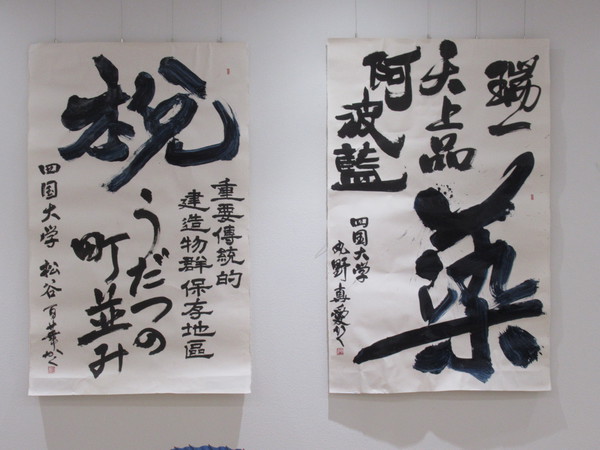 梲
重要傳統的
建造物群保存地區
うだつの
町並み
四国大学 松谷百華かく
瑞一
天上品
阿波藍
染
四国大学
真愛かく